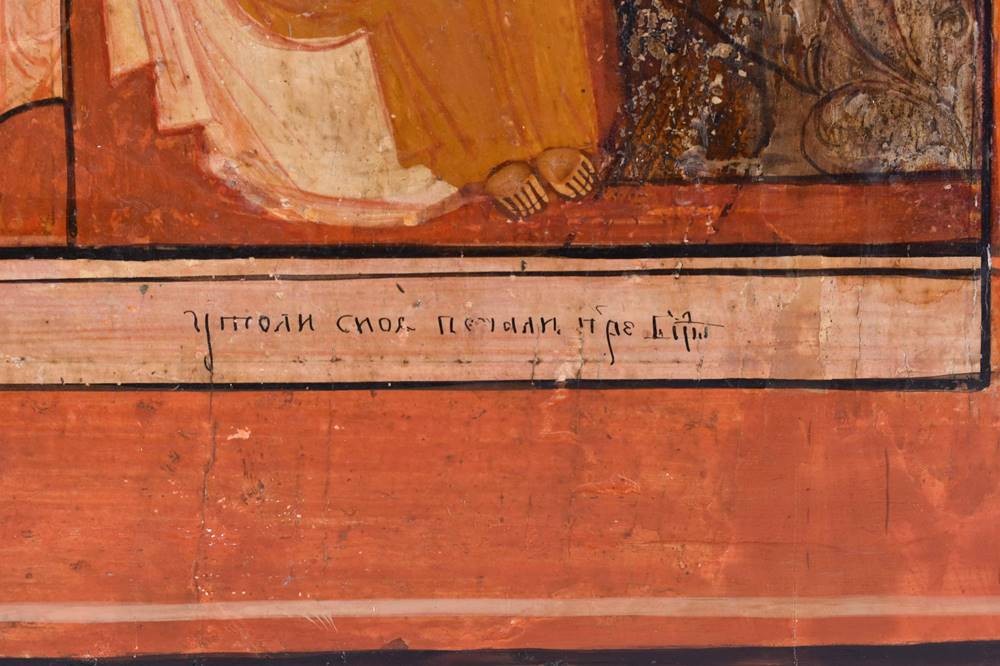 утоли моѧ печали прⷭ҇е бцⷣы